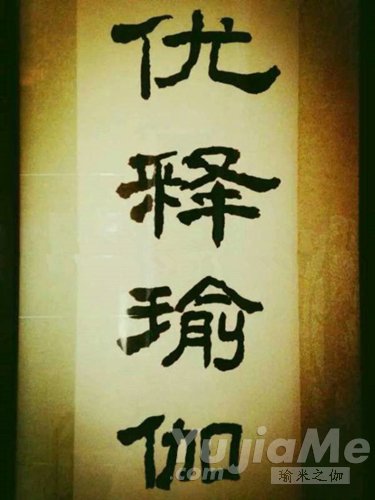 优释瑜伽
YujiaMe
.com
瑜米之伽